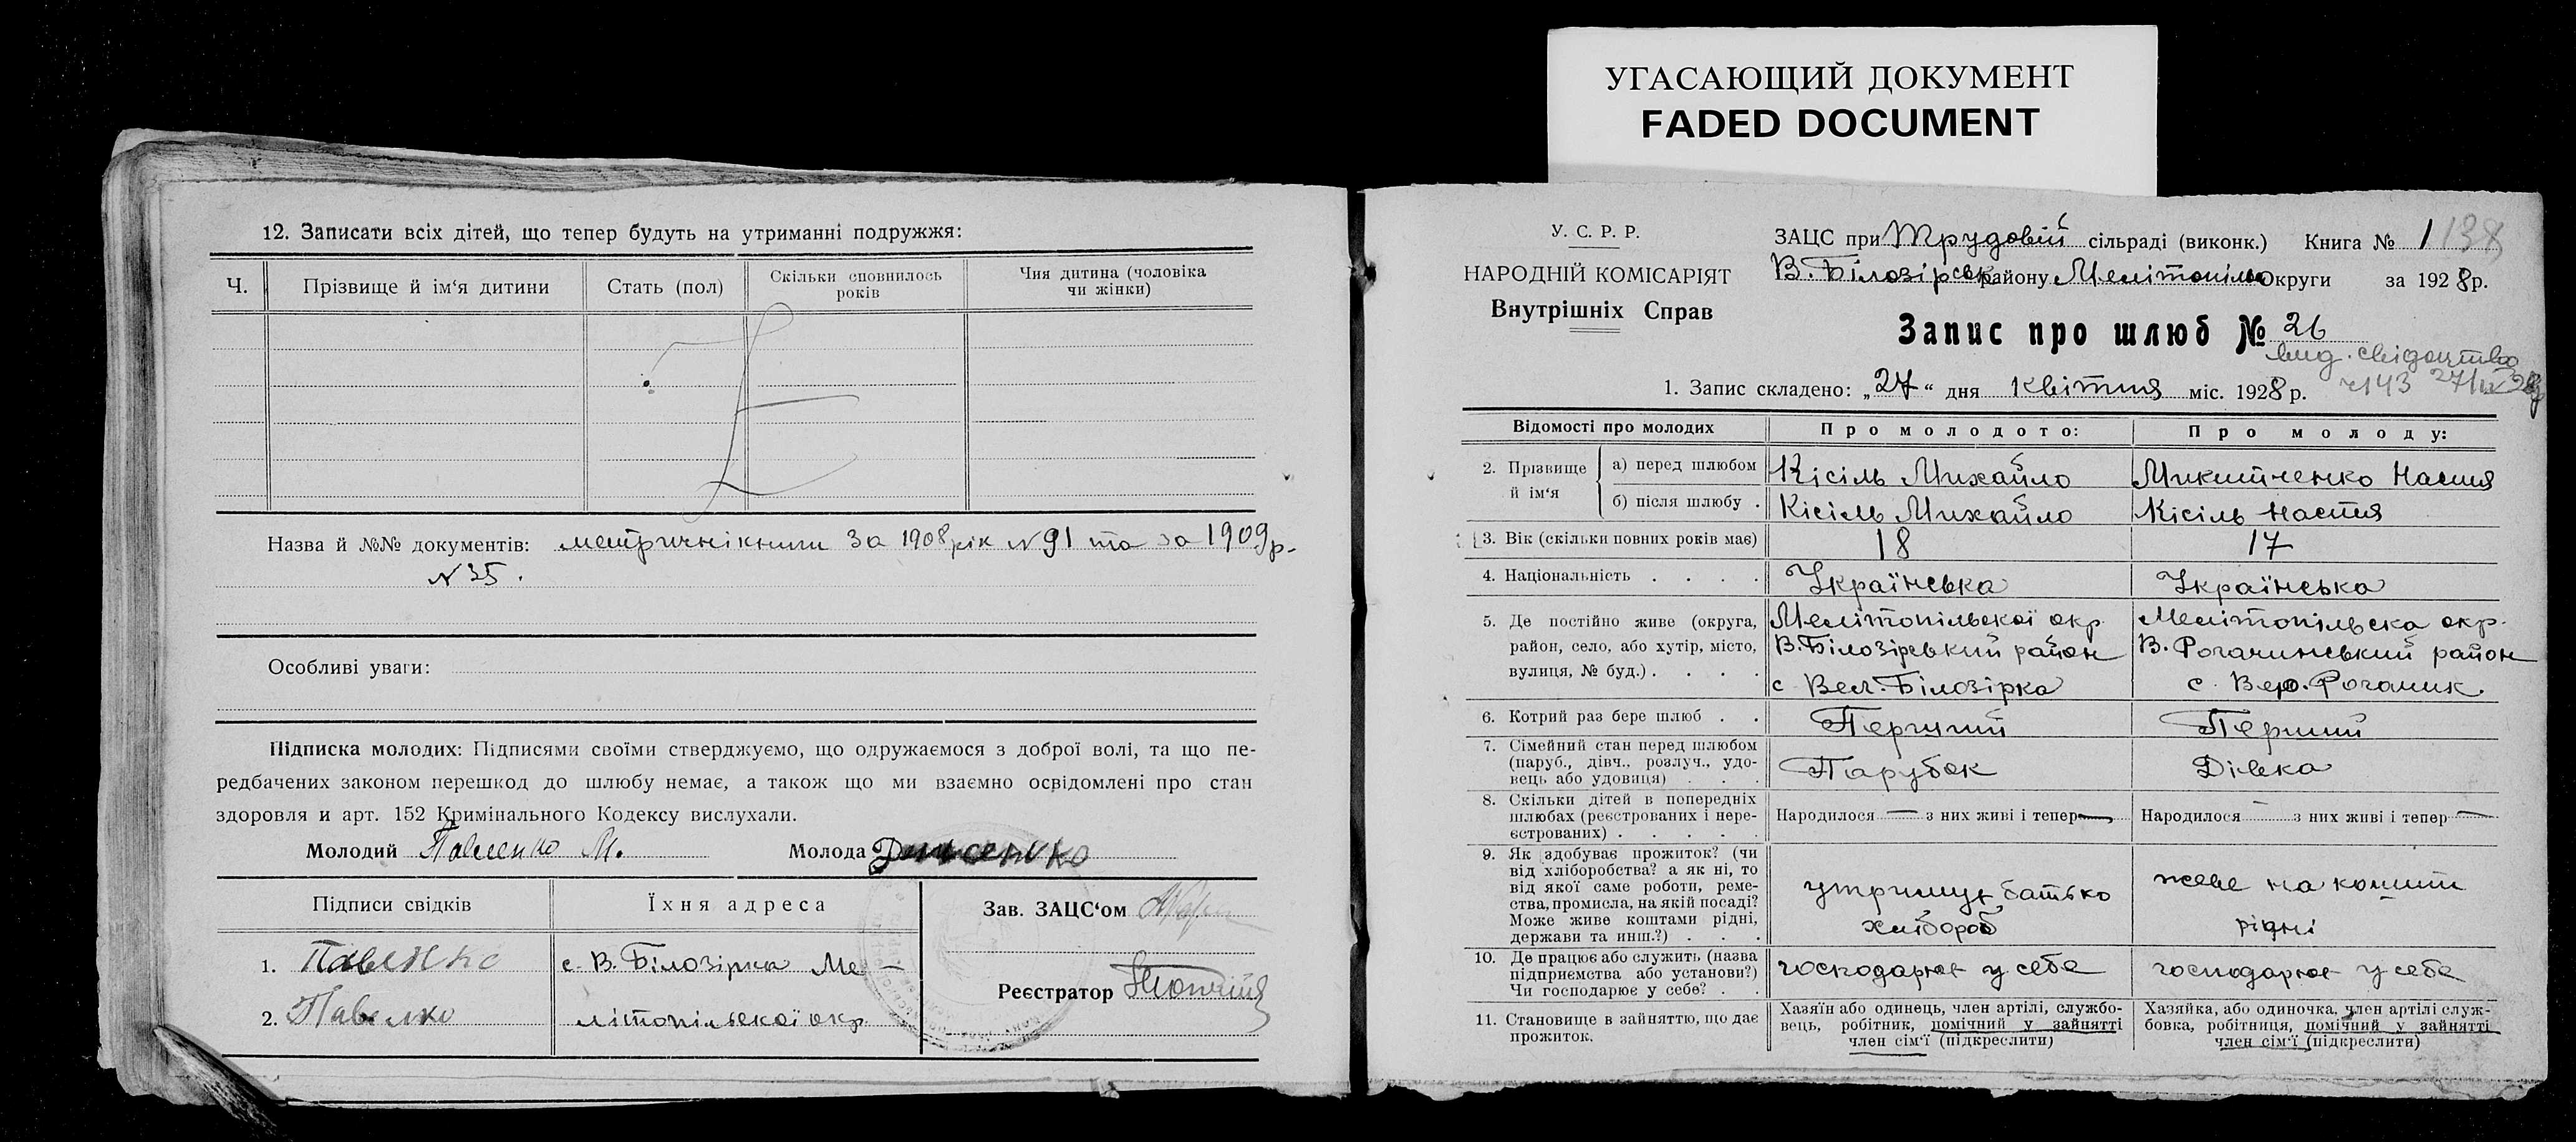 УГАСАЮЩИЙ ДОКУМЕНТ
FADED DOCUMENT
12. Записати всіх дітей, що тепер будуть на утриманні подружжя:
Ч. Прізвище й ім‘я дитини Стать (пол) Скільки сповнилось років Чия дитина (чоловіка чи жінки)
Назва й №№ документів: метричні книги за 1908 рік №91 та за 1909р.
№35.
Особливі уваги:
Підписка молодих: Підписями своїми стверджуємо, що одружаємося з доброї волі, та що пе-
редбачених законом перешкод до шлюбу немає, а також що ми взаємно освідомлені про стан
здоровля и арт. 152 Кримінального Кодексу вислухали.
Молодий Павленко М. Молода
Підписи свідків Їхня адреса Зав. ЗАЦС‘ом
1. Павленко с. В. Білозірка Ме-
Реєстратор
2. літопільскої окр.
У. С. Р. Р.
НАРОДНІЙ КОМІСАРІЯТ
Внутрішніх Справ
ЗАЦС при Трудовій сільраді (виконк.) Книга № 1 138
В. Білозірськ району Мелітопільс Округи за 1928 р.
Запис про шлюб № 26
вид. свідоцтво
№143 27/IV 28р
1. Запис складено: „27“ дня Квітня міс. 1928 р.
Відомості про молодих Про молодого: Про молоду:
2. Прізвище й ім‘я
а) перед шлюбом Кісіль Михайло Микитченко Настя
б) після шлюбу . Кісіль Михайло Кісіль Настя
3. Вік (скільки повних років має) 18 17
4. Національність . . . . Українська Українська
5. Де постійно живе (округа, Мелітопільскої окр. Мелітопільска окр.
район, село, або хутір, місто, В. Білозірський район В. Рогачинський район
вулиця, № буд.) . . . . с Вел. Білозірка с. Вер. Рогачик
6. Котрий раз бере шлюб . . Перший Перший
7. Сімейний стан перед шлюбом
(паруб., дівч., розлуч., удо- Парубок Дівка
вець або удовиця) . . .
8. Скільки дітей в попередніх
шлюбах (реєстрованих і нере- Народилося — з них живі і тепер — Народилося — з них живі і тепер —
єстрованих) . . . . .
9. Як здобуває прожиток? (чи
від хліборобства? а як ні, то
від якої саме роботи, реме- утримує батько живе на кошти
ства, промисла, на якій посаді?
Може живе коштами рідні, хлібороб рідні
держави та инш.?) . . .
10. Де працює або служить (назва
підприємства або установи?) господарює у себе господарює у себе
Чи господарює у себе? . .
11. Становище в зайняттю, що дає прожиток.
Хазяїн або одинець, член артілі, службо-
вець, робітник, помічний у зайнятті
член сім‘ї (підкреслити)
Хазяйка, або одиночка, член артілі служ-
бовка, робітниця, помічний у зайнятті
член сім‘ї (підкреслити)